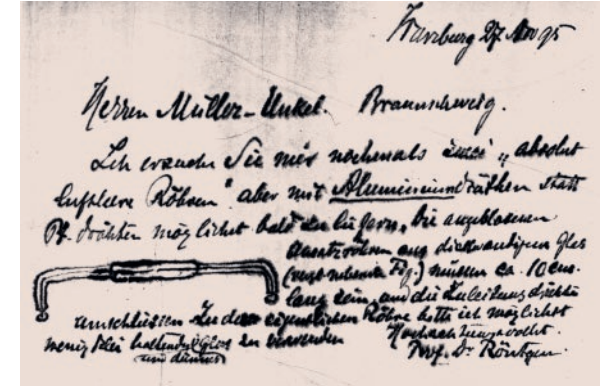 Würzburg 27. Nov 95
Herren Müller-Unkel. Braunschweig.
Ich ersuche Sie mir nochmals zwei „absolut
luftleere Röhren“ aber mit Aluminiumdrähten statt
Pt. drähten möglichst bald zu liefern. Die angeblasenen
Ansatzröhren aus dickwandigem Glas
(vergl. nebens. Fig.) müssen ca. 10 cm.
lang sein, um die Zuleitungsdrähte
umschliessen. Zu der eigentlichen Röhre bitte ich möglichst
wenig Blei haltendes Glas zu verwenden
und dünnes
Hochachtungsvoll.
Prof. Dr Röntgen.